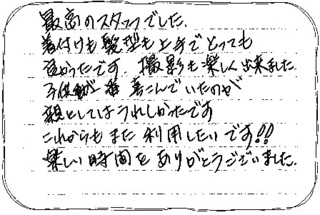 最高のスタッフでした。
着付けも髪型も上手でとっても
良かったです。撮影も楽しく出来ました
子供が喜こんでいたのが
親としてはうれしかったです
これからもまた利用したいです!!
楽しい時間をありがとうございました。